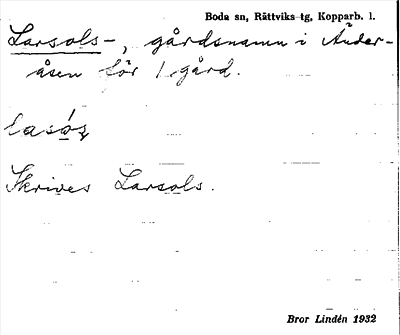 Boda sn, Rättviks tg, Kopparb. l.
Larsols-, gårdsnamn i Ander-
åsen för 1 gård.
Skrives Larsols.
Bror Lindén 1932